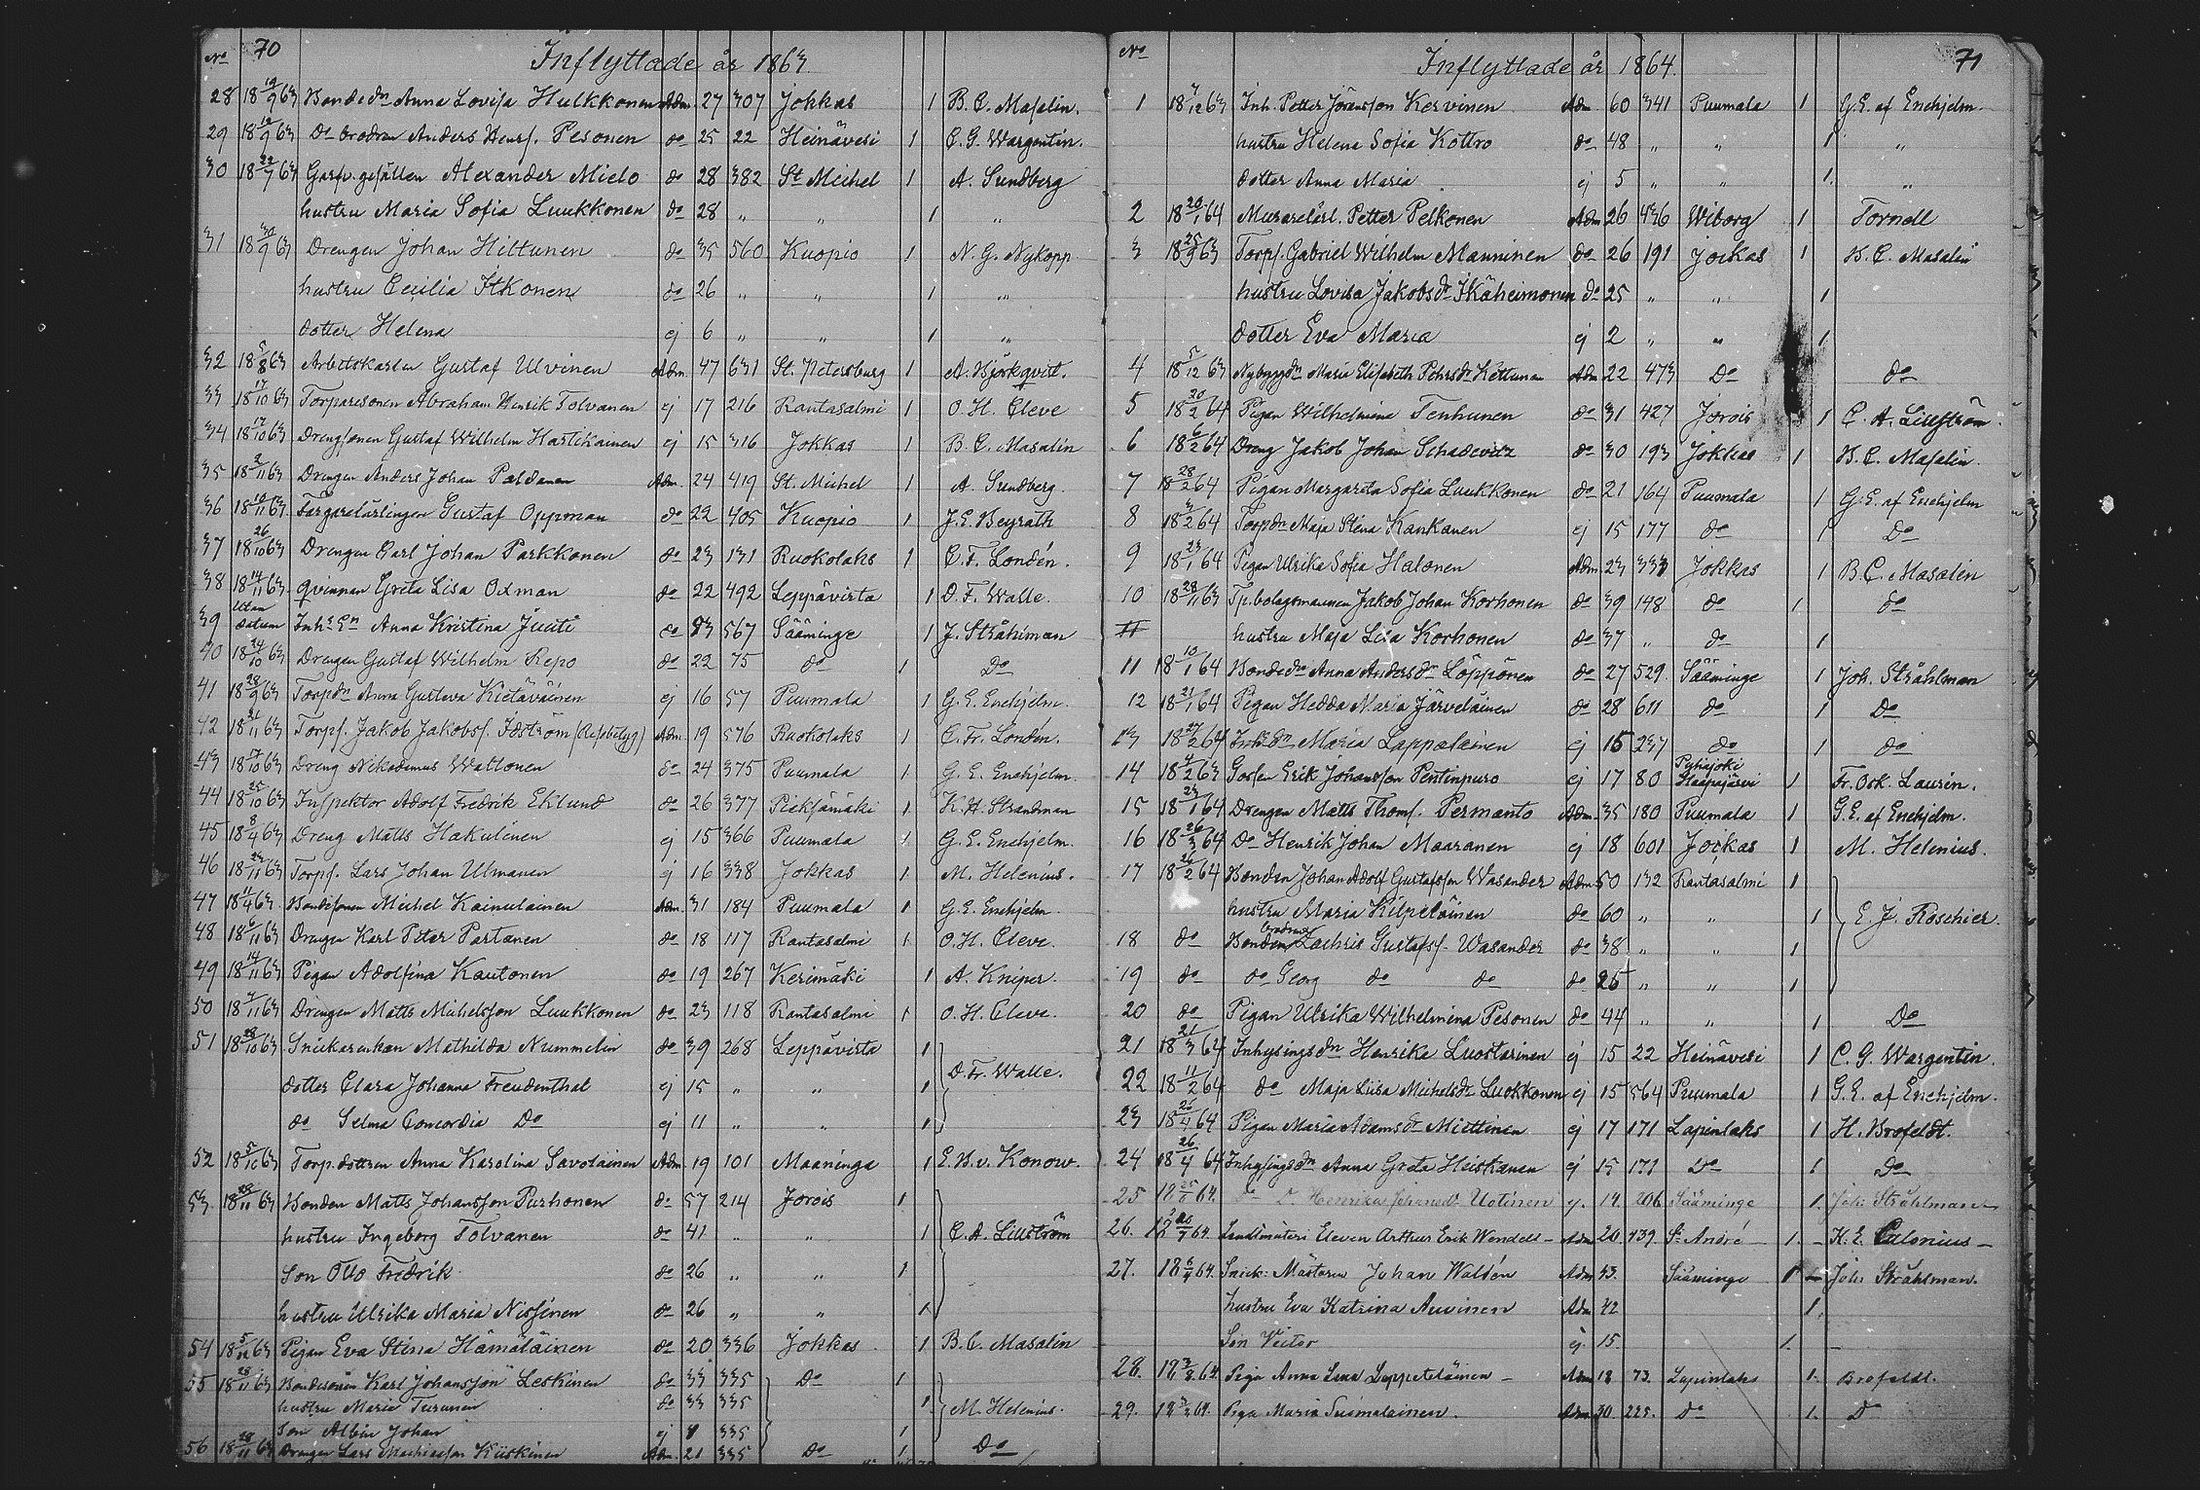 No 70 Inflyttade år 1863.
28 18 19/9 63 Bondedn Anna Lovisa Hulkkonen Adm. 27 307 Jokkas 1 B. C. Masalin.
29 18 19/9 63 Do brodren Anders Henrs. Pesonen do 25 22 Heinävesi 1 C. G. Wargentin.
30 18 22/7 63 Garfv. gesällen Alexander Mielo do 28 382 St Michel 1 A. Sundberg
hustru Maria Sofia Luukkonen do 28 " " 1 "
31 18 30/9 63 Drengen Johan Hiltunen do 35 560 Kuopio 1 N. G. Nykopp
hustru Cecilia Itkonen do 26 " " 1 "
dotter Helena ej 6 " " 1 "
32 18 5/8 63 Arbetskarlen Gustaf Ulvinen Adm. 47 631 St. Petersburg 1 A. Björkqvist.
33 18 17/10 63 Torparesonen Abraham Henrik Tolvanen ej 17 216 Rantasalmi 1 O. H. Cleve
34 18 17/10 63 Drengsonen Gustaf Wilhelm Hartikainen ej 15 316 Jokkas 1 B. C. Masalin
35 18 2/11 63 Drengen Anders Johan Paldanen Adm. 24 419 St. Michel 1 A. Sundberg.
36 18 10/11 63 Färgarelärlingen Gustaf Oppman do 22 405 Kuopio 1 J. E. Beyrath
37 18 26/10 63 Drengen Carl Johan Parkkonen do 23 131 Ruokolaks 1 C. F. Londén.
38 18 14/11 63 Qvinnan Greta Lisa Oxman do 22 492 Leppävirta 1 D. F. Walle.
39 utan datum Inhs En Anna Kristina Juuti do 53 567 Sääminge 1 J. Stråhlman
40 18 24/10 63 Drengen Gustaf Wilhelm Repo do 22 75 do 1 Do
41 18 28/9 63 Torpdn Anna Gustava Kietäväinen ej 16 57 Puumala 1 G. E. Enehjelm.
42 18 21/11 63 Torps. Jakob Jakobss. Idström (Resebetyg) Adm. 19 576 Ruokolaks 1 C. Fr. Londén.
43 18 17/10 63 Dreng Nikodemus Wattonen do 24 375 Puumala 1 G. E. Enehjelm.
44 18 25/10 63 Inspektor Adolf Fredrik Eklund do 26 377 Pieksämäki 1 K. H. Strandman
45 18 8/4 63 Dreng Matts Hakulinen ej 15 366 Puumala 1 G. E. Enehjelm.
46 18 23/11 63 Torps. Lars Johan Ulmanen ej 16 338 Jokkas 1 M. Helenius.
47 18 11/4 63 Bondesonen Michel Kainulainen Adm. 31 184 Puumala 1 G. E. Enehjelm
48 18 6/11 63 Drengen Karl Peter Partanen do 18 117 Rantasalmi 1 O. H. Cleve.
49 18 14/11 63 Pigan Adolfina Kautonen do 19 267 Kerimäki 1 A. Kniper.
50 18 7/11 63 Drengen Matts Michelsson Luukkonen do 23 118 Rantasalmi 1 O. H. Cleve.
51 18 28/10 63 Snickarenkan Mathilda Nummelin do 39 268 Leppävirta 1 D. Fr. Walle.
dotter Clara Johanna Freudenthal ej 15 " " 1
do Selma Concordia Do ej 11 " " 1
52 18 5/10 63 Torp. dottren Anna Karolina Savolainen Adm 19 101 Maaninga 1 E. B. v. Konow.
53 18 28/11 63 Bonden Matts Johansson Purhonen do 57 214 Jorois 1
hustru Ingeborg Tolvanen do 41 " " 1 C. A. Lilliström
Son Otto Fredrik do 26 " " 1
hustru Ulrika Maria Nissinen do 26 " " 1
54 18 5/11 63 Pigan Eva Stina Hämäläinen do 20 336 Jokkas 1 B. C. Masalin
55 18 28/11 63 Bondesonen Karl Johansson Leskinen do 33 335 Do 1
hustru Maria Turunen do 33 335 1 M. Helenius.
Son Albin Johan ej 8 335 1
56 18 28/11 63 Drengen Lars Mathiasson Kiiskinen Adm. 21 335 Do 1 Do
No Inflyttade år 1864. 71
1 18 7/12 63 Inh. Petter Jöransson Kervinen Adm 60 341 Puumala 1 G. E. af Enehjelm.
hustru Helena Sofia Kottro do 48 " " 1 "
dotter Anna Maria ej 5 " " 1 "
2 18 20/1 64 Murarelärl. Petter Pelkonen Adm 26 436 Wiborg 1 Tornell
3 18 25/9 63 Torps. Gabriel Wilhelm Manninen do 26 191 Jockas 1 B. C. Masalin
hustru Lovisa Jakobsdr Ikäheimonen do 25 " " 1
dotter Eva Maria ej 2 " " 1
4 18 5/12 63 Nybyggdn Maria Elisabeth Pehrsdr Kettunen Adm 22 473 Do do
5 18 20/2 64 Pigan Wilhelmina Tenhunen do 31 427 Jorois 1 C. A. Lilliström.
6 18 6/2 64 Dreng Jakob Johan Schadevitz do 30 193 Jokkas 1 B. C. Masalin.
7 18 28/2 64 Pigan Margareta Sofia Luukkonen do 21 164 Puumala 1 G. E. af Enehjelm
8 18 3/2 64 Torpdn Maja Stina Kankanen ej 15 177 do 1 Do
9 18 23/1 64 Pigan Ulrika Sofia Halonen Adm 23 333 Jokkas 1 B. C. Masalin
10 18 28/11 63 Tp. bolagsmannen Jakob Johan Korhonen do 39 148 do 1 do
hustru Maja Lisa Korhonen do 37 " do 1
11 18 10/1 64 Bondedn Anna Andersdr Löppönen do 27 529. Sääminge 1 Joh. Stråhlman
12 18 21/1 64 Pigan Hedda Maria Järveläinen do 28 611 do 1 Do
13 18 27/2 64 Inhsdn Maria Lappalainen ej 15 237 do 1 do
14 18 4/2 63 Gossen Erik Johansson Pentinpuro ej 17 80 Pyhäjoki Haapajärvi 1 Fr. Osk. Laurin.
15 18 23/1 64 Drengen Matts Thoms. Permanto Adm. 35 180 Puumala 1 G. E. af Enehjelm.
16 18 26/3 64 Do Henrik Johan Maaranen ej 18 601 Jockas 1 M. Helenius.
17 18 26/2 64 Bonden Johan Adolf Gustafsson Wasander Adm 50 132 Rantasalmi 1
hustru Maria Kilpeläinen do 60 " " 1 E. J. Roschier
18 do Bonden brodren Zachris Gustafss. Wasander do 38 " " 1
19 do do Georg do do do 25 " " 1
20 do Pigan Ulrika Wilhelmina Pesonen do 44 " " 1 Do
21 18 21/3 64 Inhysingsdn Henrika Luostarinen ej 15 22 Heinävesi 1 C. G. Wargentin.
22 18 11/2 64 do Maja Liisa Michelsdr Luukkonen ej 15 564 Puumala 1 G. E. af Enehjelm.
23 18 26/4 64 Pigan Maria Adamsdr Miettinen ej 17 171 Lapinlaks 1 H. Brofeldt.
24 18 26/4 64 Inhysingsdn Anna Greta Heiskanen ej 15 171 Do 1 Do
25 18 64. do D. Henrika Johansdr Uotinen ej. 14 206 Sääminge 1. Joh: Stråhlman
26. 18 64. Landtmäteri Eleven Arthur Erik Wendell Adm 20. 139. St André 1. K. E. Calonius
27. 18 6/4 64. Snick: Mästaren Johan Waldén Adm 43. Sääminge 1 Joh: Stråhlman.
hustru Eva Katrina Auvinen Adm 42 1.
Son Victor ej 15. 1.
28. 18 64. Piga Anna Lena Leppeteläinen Adm 18 73. Lapinlaks 1. Brofeldt.
29. 18 64. Piga Maria Suomalainen. Adm 30. 225. Do 1. D